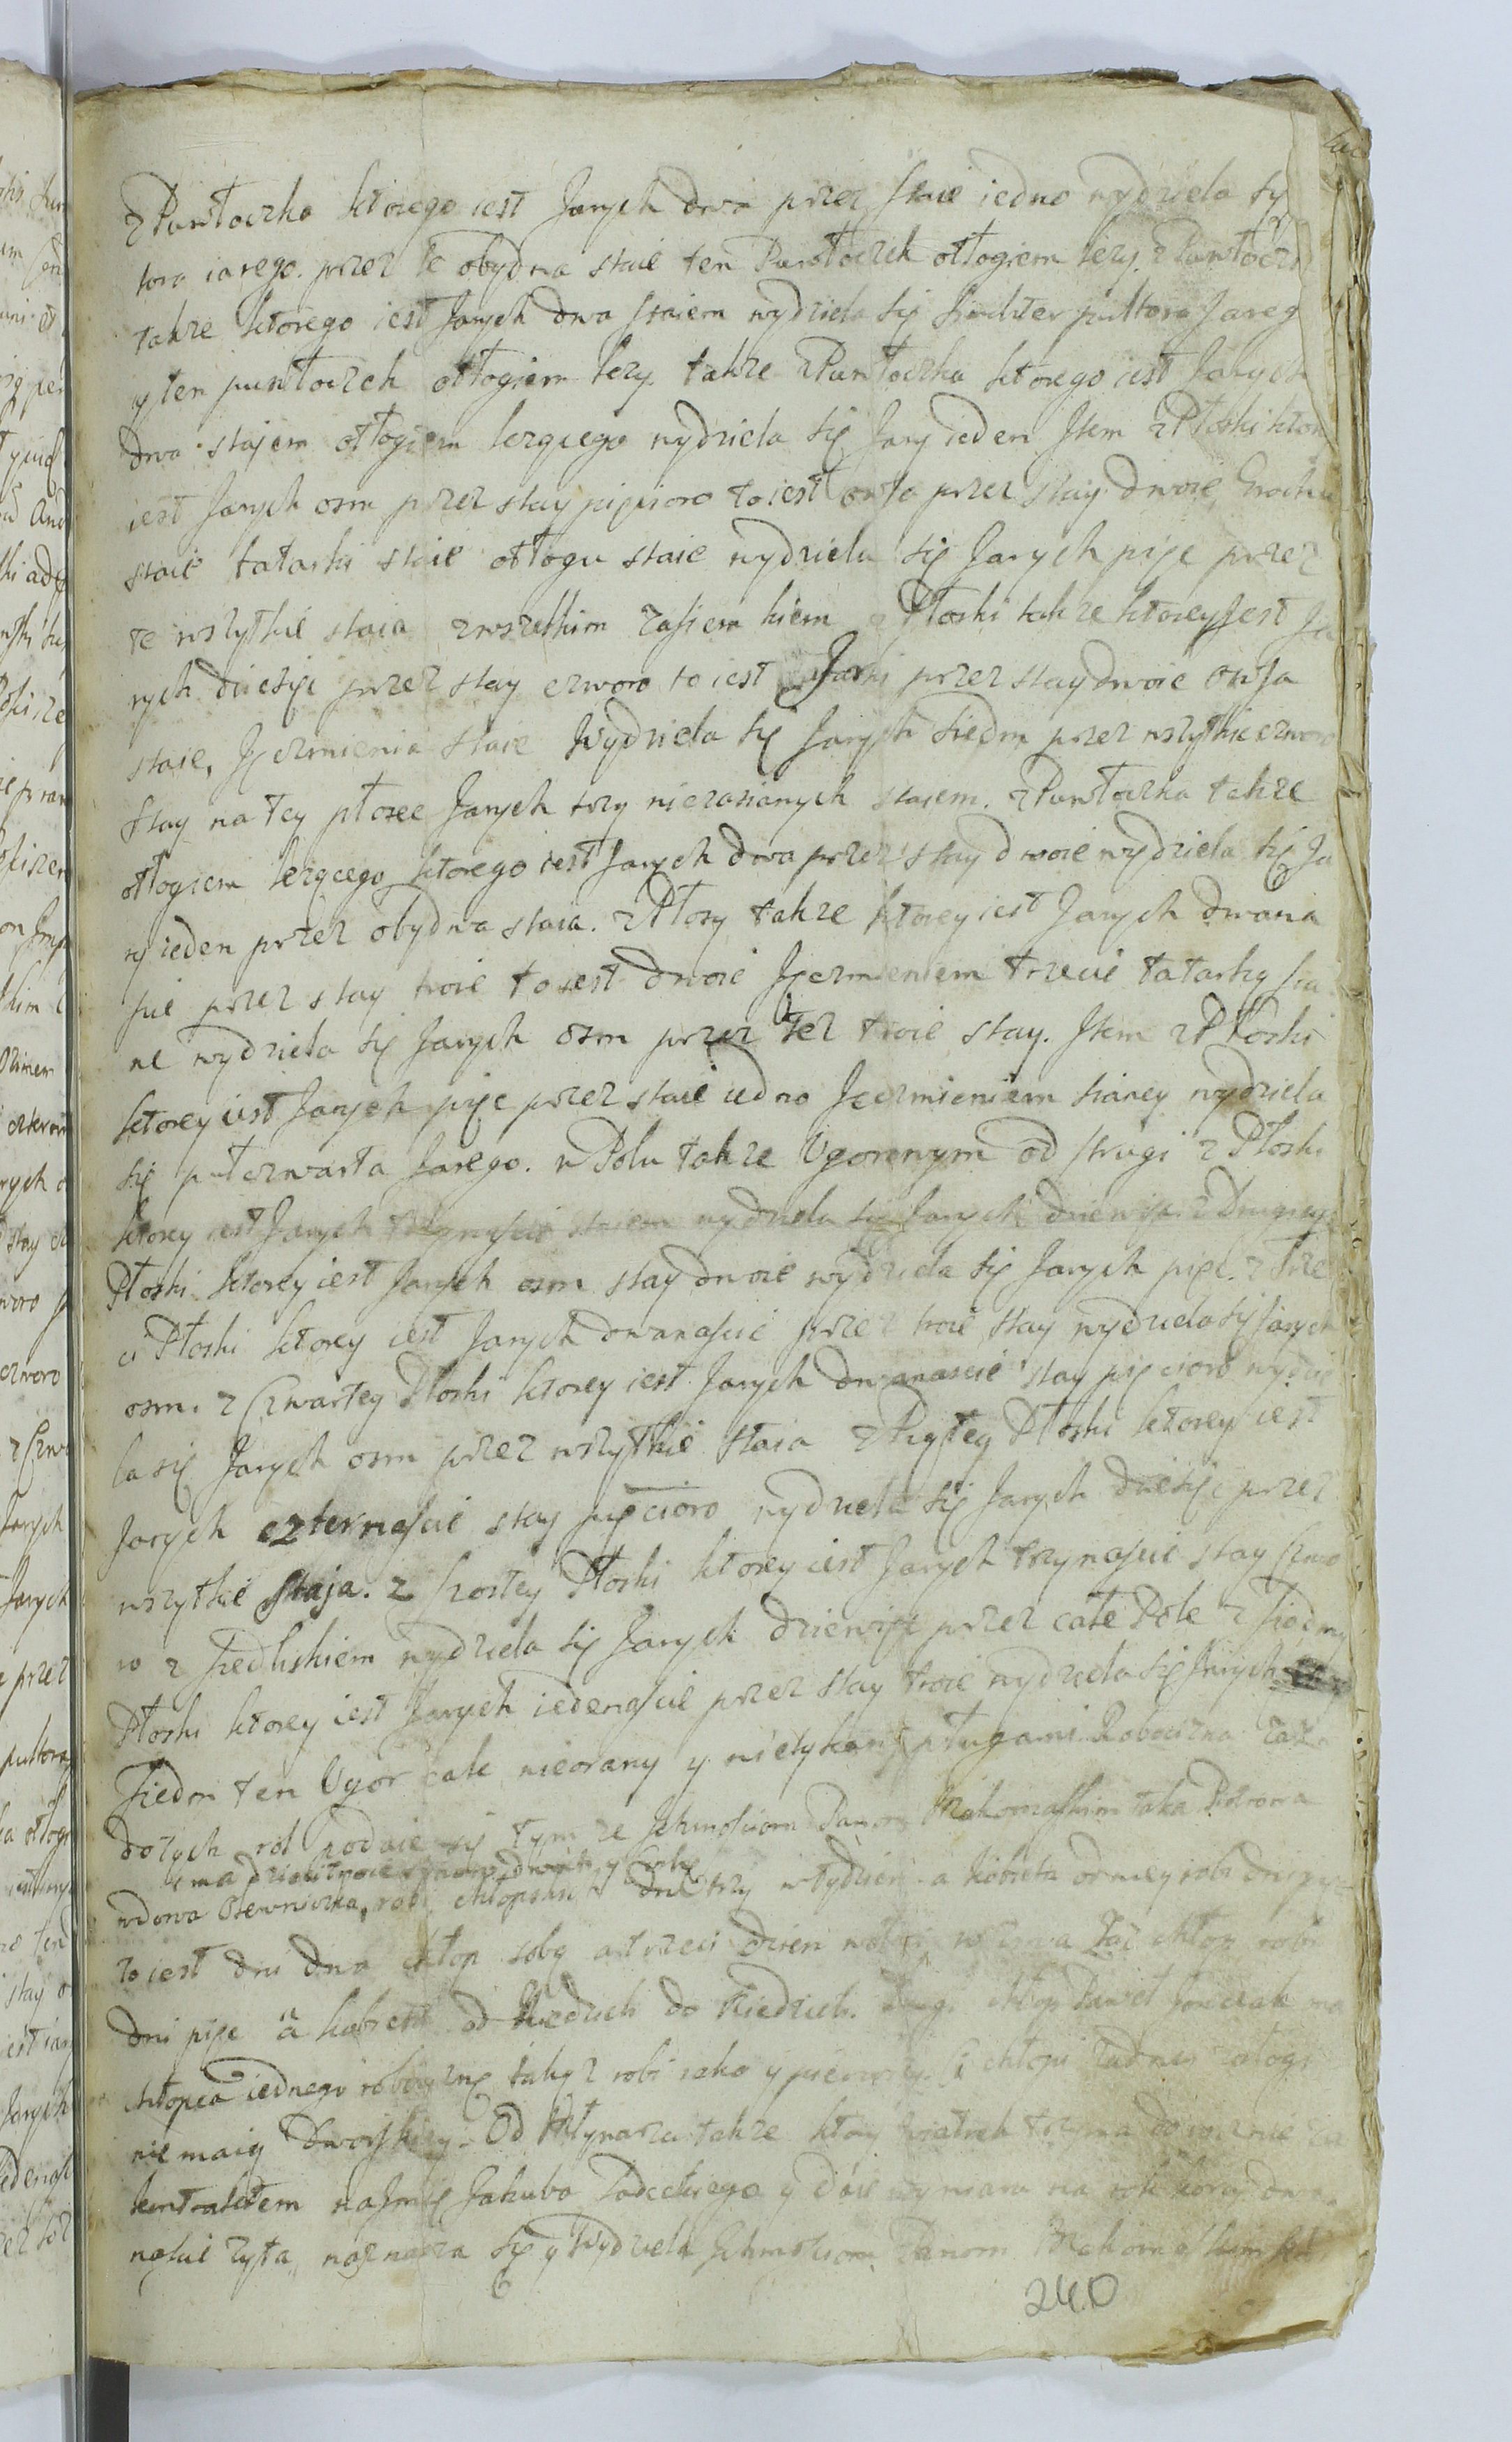 z Puwłoczka ktorego iest Jarych dwa przez staie iedno wydziela się
tora iarego. przez te obydwa staie ten Puwłoczek otłogiem lezy. z Puwłoczk
takze ktorego iest Jarych dwa staiem wydziela się pultora Jareg
y ten puwłoczek otłogiem lezy. takze z Puwłoczka ktorego iest Jarych
dwa stajem otłogiem lezącego wydziela się Jary ieden Item z Płoski ktor
iest Jarych osm przez stay pięcioro to iest owsa przez stay dwoie Grochu
staie tatarki staie otłogu staie wydziela się Jarych pięc przez
te wszytkie staia zwszelkim zasiem kiem z Płoski takze ktorey Jest Ja
rych dziesięc przez stay czworo to iest Jarki przez stay dwoie owsa
staie, Jęczmienia staie Wydziela się Jarych siedm przez wszytkie czworo
stay na tey płosce Jarych trzy niezasianych staiem. z Puwłoczka takze
otłogiem lezącego ktorego iest Jarych dwa przez stay dwoie wydziela się Ja
ry ieden przez obydwa staia. z Płosy takze ktorey iest Jarych dwana
scie przez stay troie to iest dwoie Jęczmieniem trzecie tatarką sia
ne wydziela się Jarych osm przez tez troie stay. Item z Płoski
ktorey iest Jarych pięc przez staie iedno Jęczmieniem sianey wydziela
się pułczwarta Jarego. w Polu takze Ugorowym od strugi z Płoski
ktorey iest Jarych trzynascie staiem wydziela się Jarych dziewięc z Drugiey
Płoski ktorey iest Jarych osm stay dwoie wydziela się Jarych pięc. z Trze
ci Płoski ktorey iest Jarych dwanascie przez troie stay wydziela się Jarych
osm. z Czwartey Płoski ktorey iest Jarych dwanascie stay pięcioro wydzie
la się Jarych osm przez wszytkie staia z Piątey Płoski ktorey iest
Jarych czternascie stay pięcioro wydziela się Jarych dziesięc przez
wszytkie staja. z Szostey Płoski ktorey iest Jarych trzynascie stay czwo
ro z Siedliskiem wydziela się Jarych dziewięc przez całe Pole z Siodmy
Płoski ktorey iest Jarych iedenascie przez stay troie wydziela się Jarych
Siedm ten Ugor cale nieorany y nietykany pługami Robocizna zas
do tych rol podaie się tym ze Jchmosciom Panom taka
ma dzieci troie synow dwoch y corkę
wdowa robi chłopskich dni trzy w tydzien a kobieta od niey robi drugi
to iest dni dwa chłop sobą a trzeci dzien zas chłop robi
dni pięc a kobieta od Niedzieli do Niedzieli. Drugi chłop Paweł ma
chłopca iednego robociznę takąz robi iako y pierwszy. i chłopi zadney załogi
nie maią Dworskiey. Od Młynarza takze ktory wiatrak trzyma dozywotnie za
kontraktem naimię Jakuba y daie wymiaru na rok korcy dwa
nascie zyta, naznacza się y Wydziela Jchmosciom Panom
240